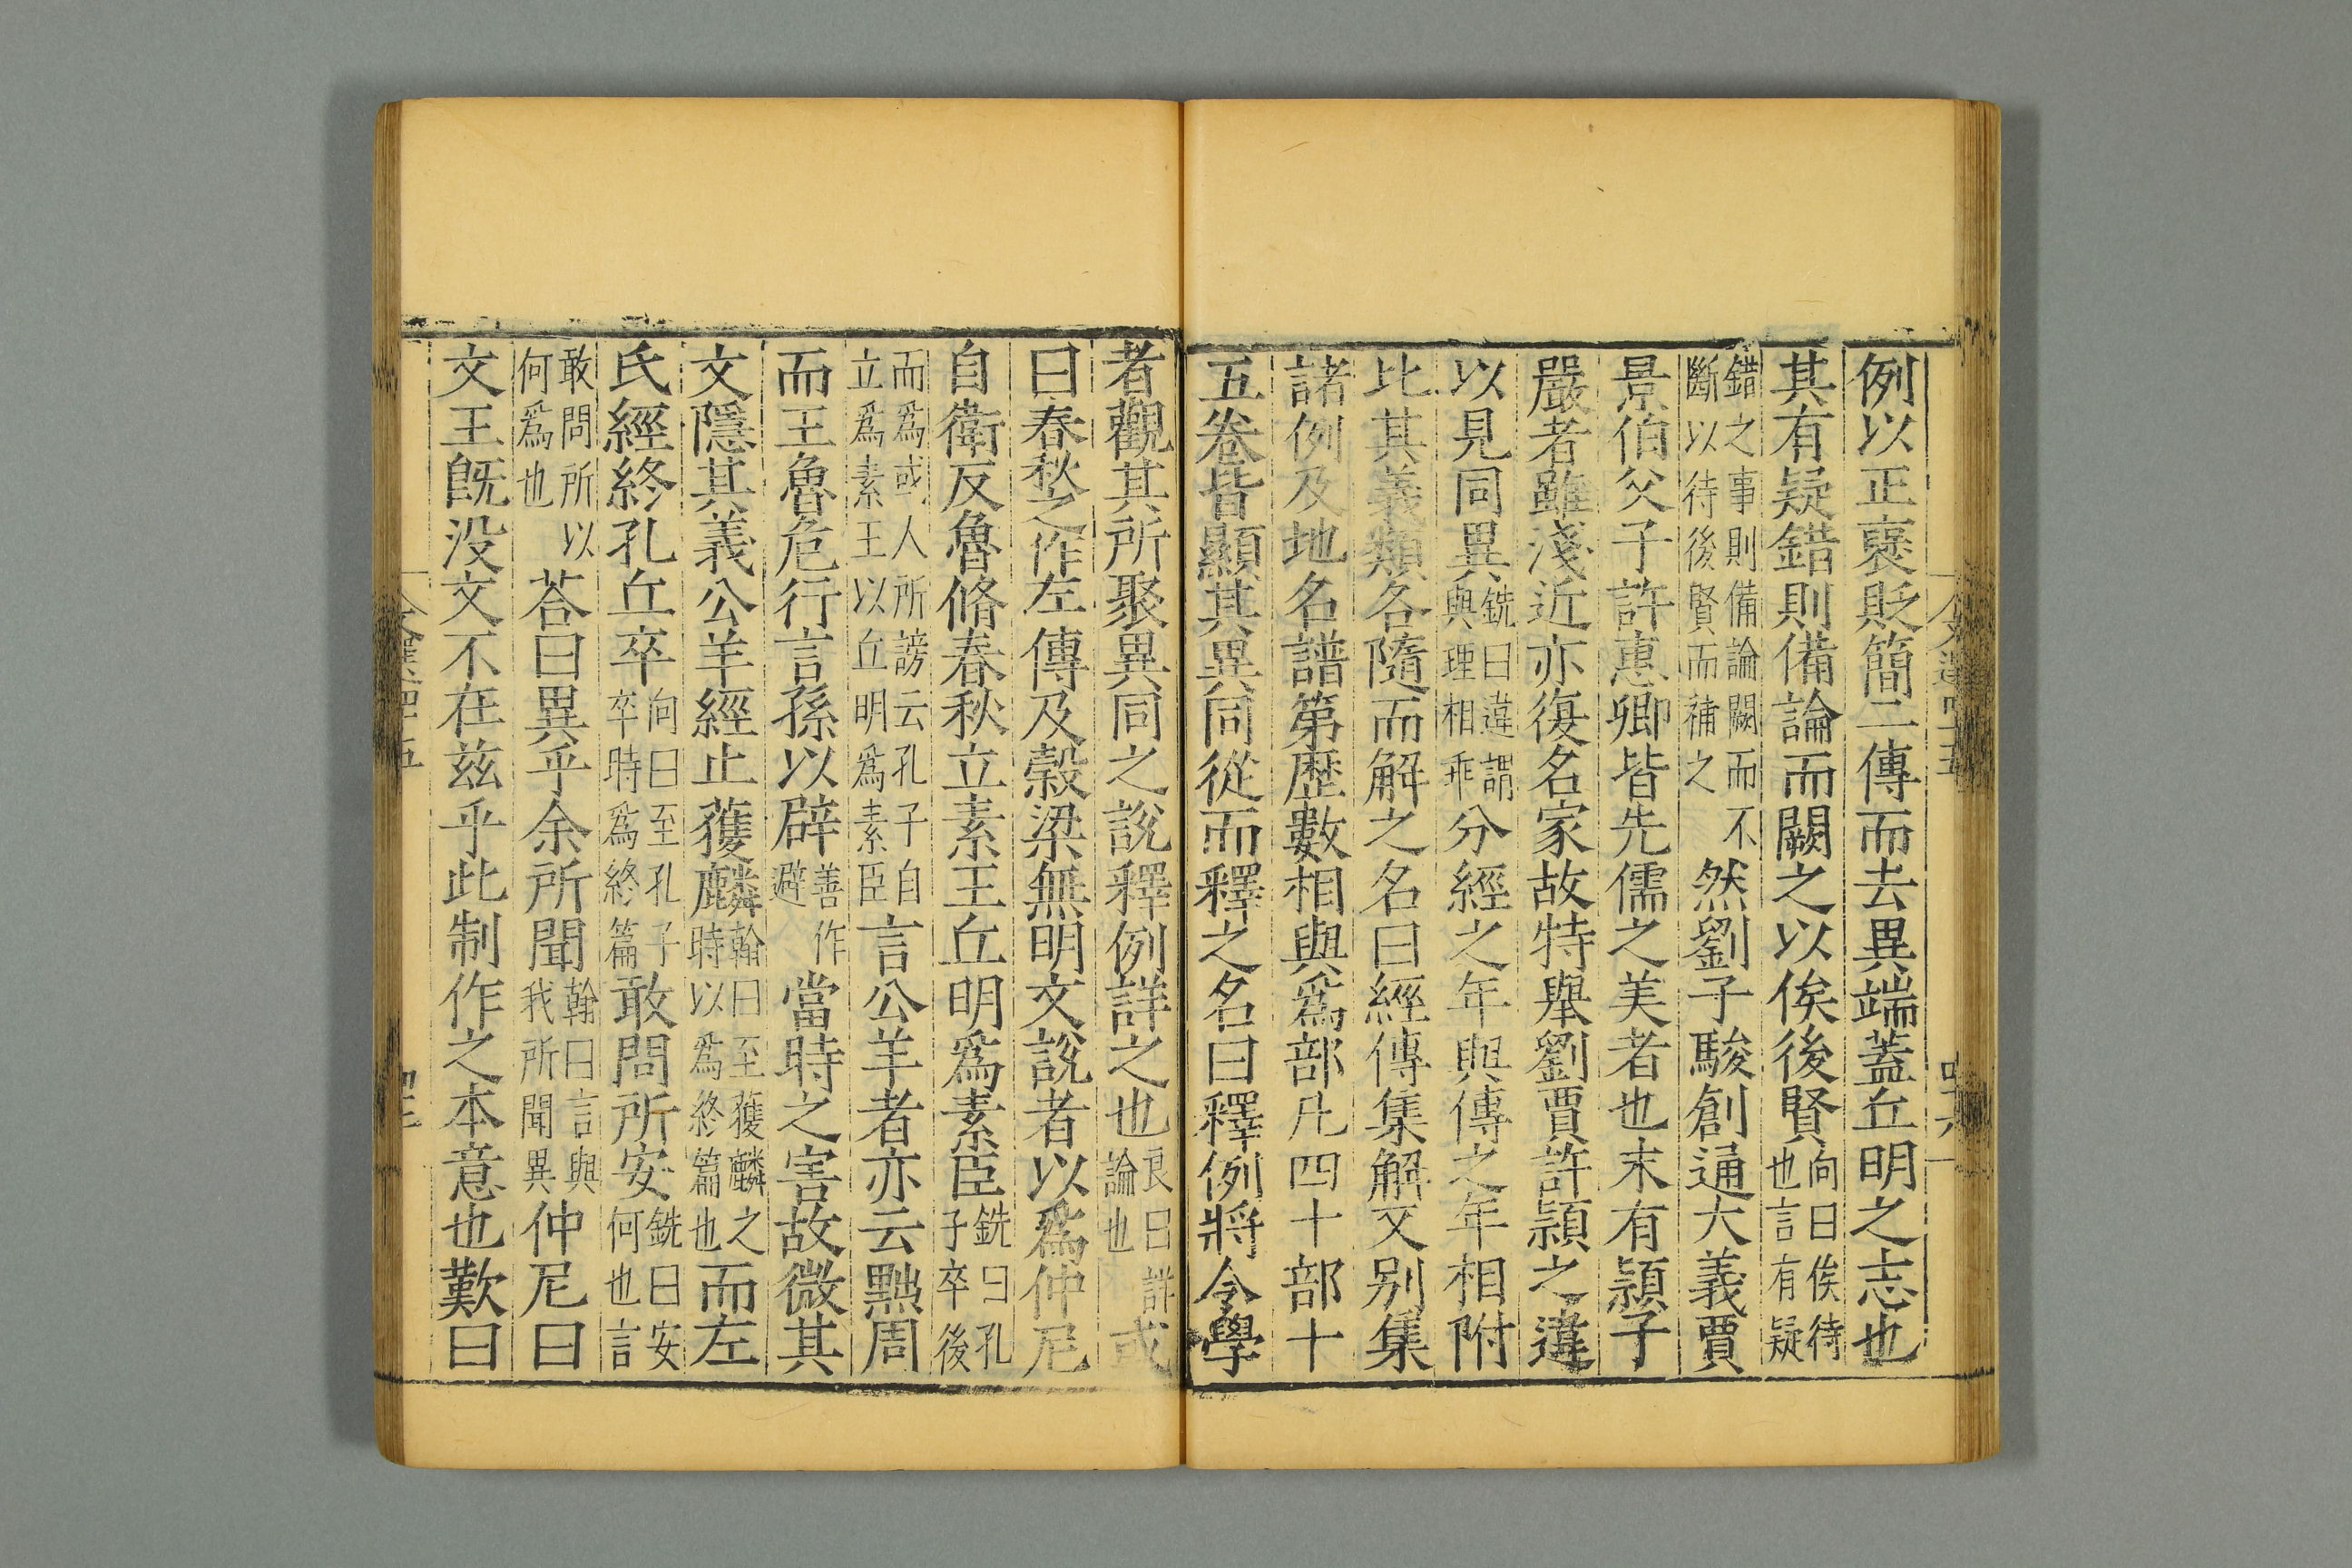 例以正襃貶簡二傳而去異端蓋丘明之志也
其有疑錯則備論而闕之以俟後賢向曰俟待也言有疑
錯之事則備論闕而不斷以待後賢而補之然劉子駿創通大義賈
景伯父子許惠卿皆先儒之美者也末有潁子
嚴者雖淺近亦復名家故特舉劉賈許潁之違
以見同異銑曰違謂與理相乖分經之年與傳之年相附
比其義類各隨而解之名曰經傳集解又别集
諸例及地名譜第歷數相與爲部凡四十部十
五卷皆顯其異同從而釋之名曰釋例將令學
者觀其所聚異同之說釋例詳之也良曰詳論也或
曰春秋之作左傳及穀梁無明文說者以爲仲尼
自衛反魯脩春秋立素王丘明爲素臣銑曰孔子卒後
而爲或人所謗云孔子自立爲素王以丘明爲素臣言公羊者亦云黜周
而王魯危行言孫以辟善作避當時之害故微其
文隱其義公羊經止獲麟翰曰至獲麟之時以爲終篇也而左
氏經終孔丘卒向曰至孔子卒時爲終篇敢問所安銑曰安何也言
敢問所以何爲也荅曰異乎余所聞翰曰言與我所聞異仲尼曰
文王旣没文不在兹乎此制作之本意也歎曰